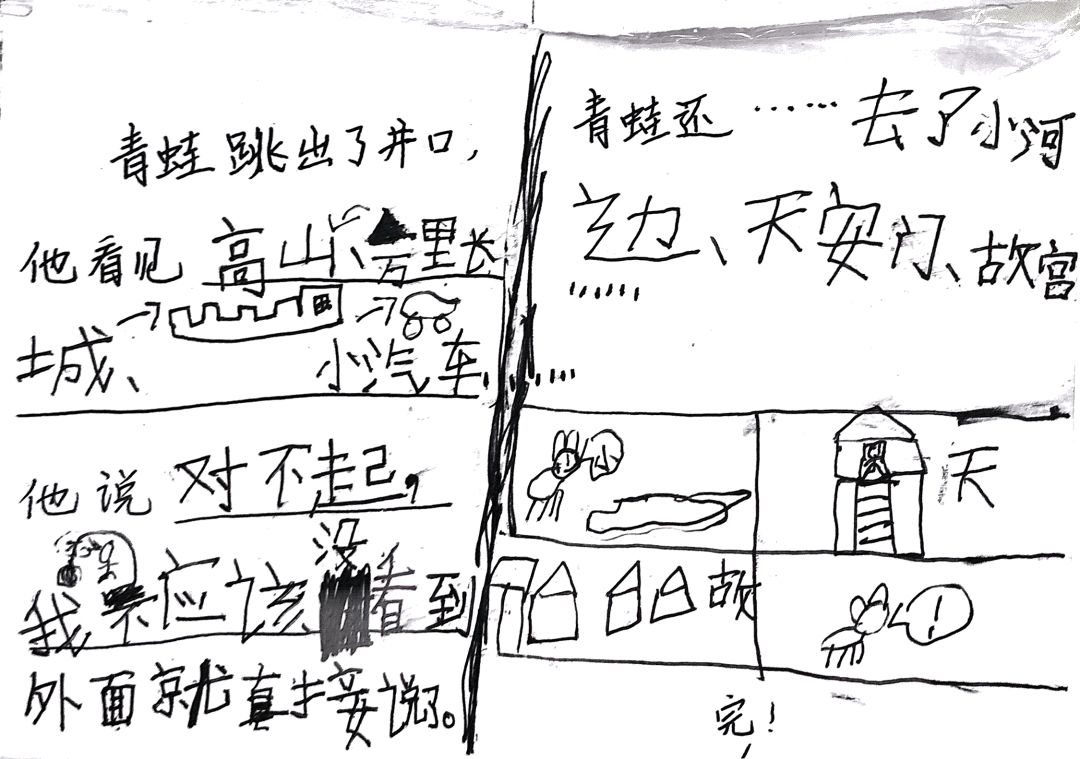 青蛙跳出了井口，
他看见高山、万里长
城、小汽车……
他说对不起，
我不应该没看到
外面就直接说了。
青蛙还……去了小河
边、天安门、故宫
……
小
天
故
！
完！